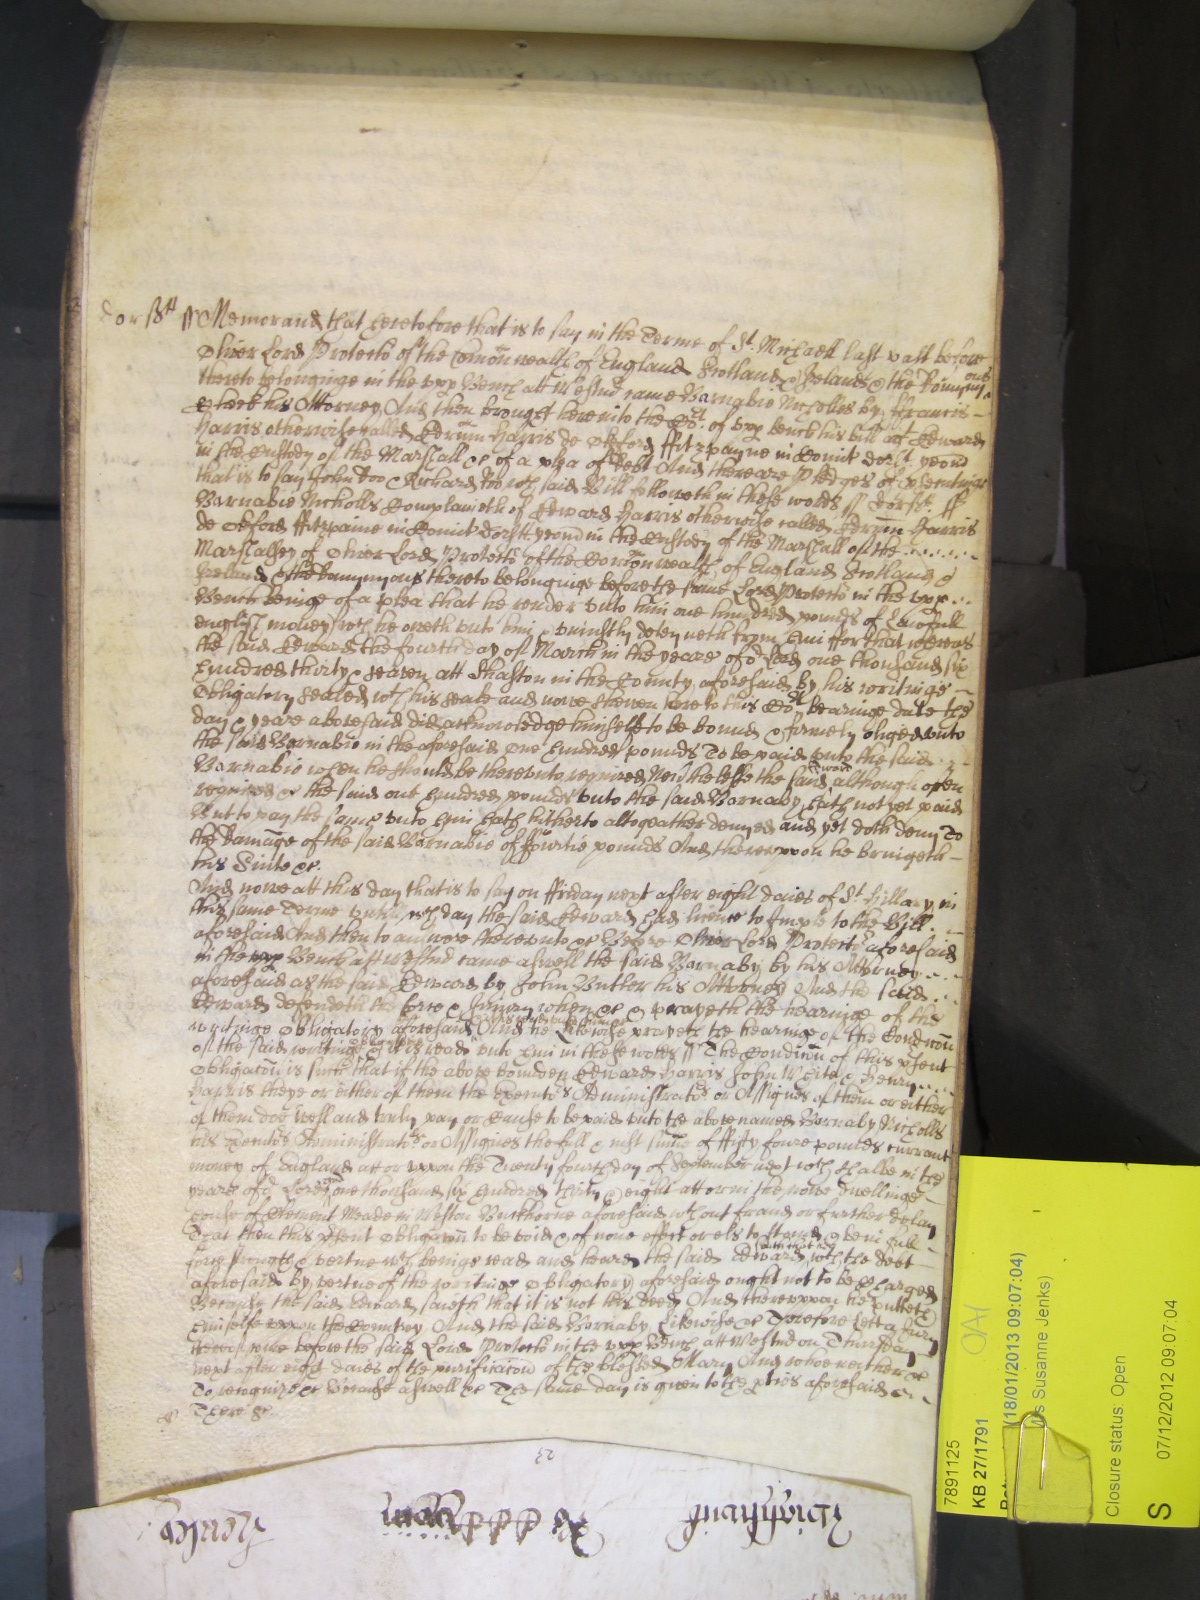 Dorsst ss Memorand that heretofore that is to say in the Terme of St. Michaell last past before
Oliver Lord Protector of the Comonwealth of England Scotland & Ireland & the Dominions
thereto belonginge in the upp Bench att Westmr came Barnabie Nicholles by Francis
his Attorney And then brought here into the Cort of upp bench his bill agt Edward
Harris otherwise called Edrum Harris de Okford ffitzpayne in Comit Dorst yeom
in the Custody of the Marshall &c of a plea of debt And there are Pledges of
that is to say John Doe & Richard Roe wch said Bill followeth in these words ss Dorst. ss
Barnabie Nicholls Complaineth of Edward Harris otherwise called Edrum Harris
de Okford ffitzpaine in Comit Dorstt yeom in the Custody of the Marshall of the
Marshalsey of Oliver Lord Protector of the Comonwealth of England Scotland &
Ireland & the Dominions thereto belonginge before the same Lord Protector in the upp
Bench beinge of a plea that he render unto him one hundred pounds of Lawfull
english money wch he oweth unto him & uniustly deteyneth from him ffor that whereas
the said Edward the fourth day of March in the yeare of or Lord one thousand six
hundred thirty & seaven att Shaston in the County aforesaid by his writinge
Obligatory sealed wth his seale and nowe shewen here to this Cort bearinge date the
day & yeare abovesaid did acknowledge himselfe to be bound & firmely obliged unto
the said Barnabie in the aforesaid one hundred pounds To be paid unto the said
Barnabie when he should be thereunto required Nevtheless the said Edward although often
required &c the said one hundred pounds unto the said Barnaby hath not yet paid
But to pay the same unto him hath hitherto altogeather denyed and yet doth deny To
the Damage of the said Barnabie of ffourtie pounds And thereuppon he bringeth
this Suite &c.
And nowe att this day that is to say on ffriday next after eight daies of St Hillary in
this same Terme untill wch day the said Edward had licence to Imple to the Bill
aforesaid And then to answere thereunto &c Before Oliver Lord Protector aforesaid
in the upp Bench att Westmr came aswell the said Barnaby by his Attorney
aforesaid as the said Edward by John Butler his Attorney And the said
Edward defendeth the force & Iniury when &c & prayeth the hearinge of the
writinge Obligatory aforesaid And he Likewise prayeth the hearinge of the Condicon
of the said writinge & it is read unto him in these words ss The Condicon of this psent
Obligacon is such that if the above bounden Edward Harris John White & Henry
Harris they or either of them the Executors Administrators or Assignes of them or either
of them doe well and truly pay or Cause to be paid unto the above named Barnaby Nicholls
his Executors Administrators or Assignes the full & iust sume of ffifty foure poundes currant
money of England att or uppon the Twenty fourth day of September next wch shalbe in the
yeare of or Lord one thousand six hundred thirty & eight att or in the nowe dwellinge
house of Clement Meade in Weston Buckhorne aforesaid wthout fraud or further delay
That then this psent Obligacon to be void & of none effect or els to stand & be in full
force strength & vertue wch beinge read and heard the said Edward saith that the debt
aforesaid by vertue of the writinge Obligatory aforesaid ought not to be charged
Because the said Edward saieth that it is not his deed And thereuppon he putteth
himselfe uppon the Countrey And the said Barnaby Likewise &c Therefore Lett a Jury
thereuppon come before the said Lord Protector in the upp Bench att Westmr on Thursday
next after eight daies of the purificacon of the blessed Mary And whoe neither &c
To recognize &c Because aswell &c The same day is given to the pties aforesaid
There &c.
23
Wightwick
7891125
KB 27/1791
(18/01/2013 09:07:04)
Susanne Jenks)
Closure status: Open
S
07/12/2012 09:07:04